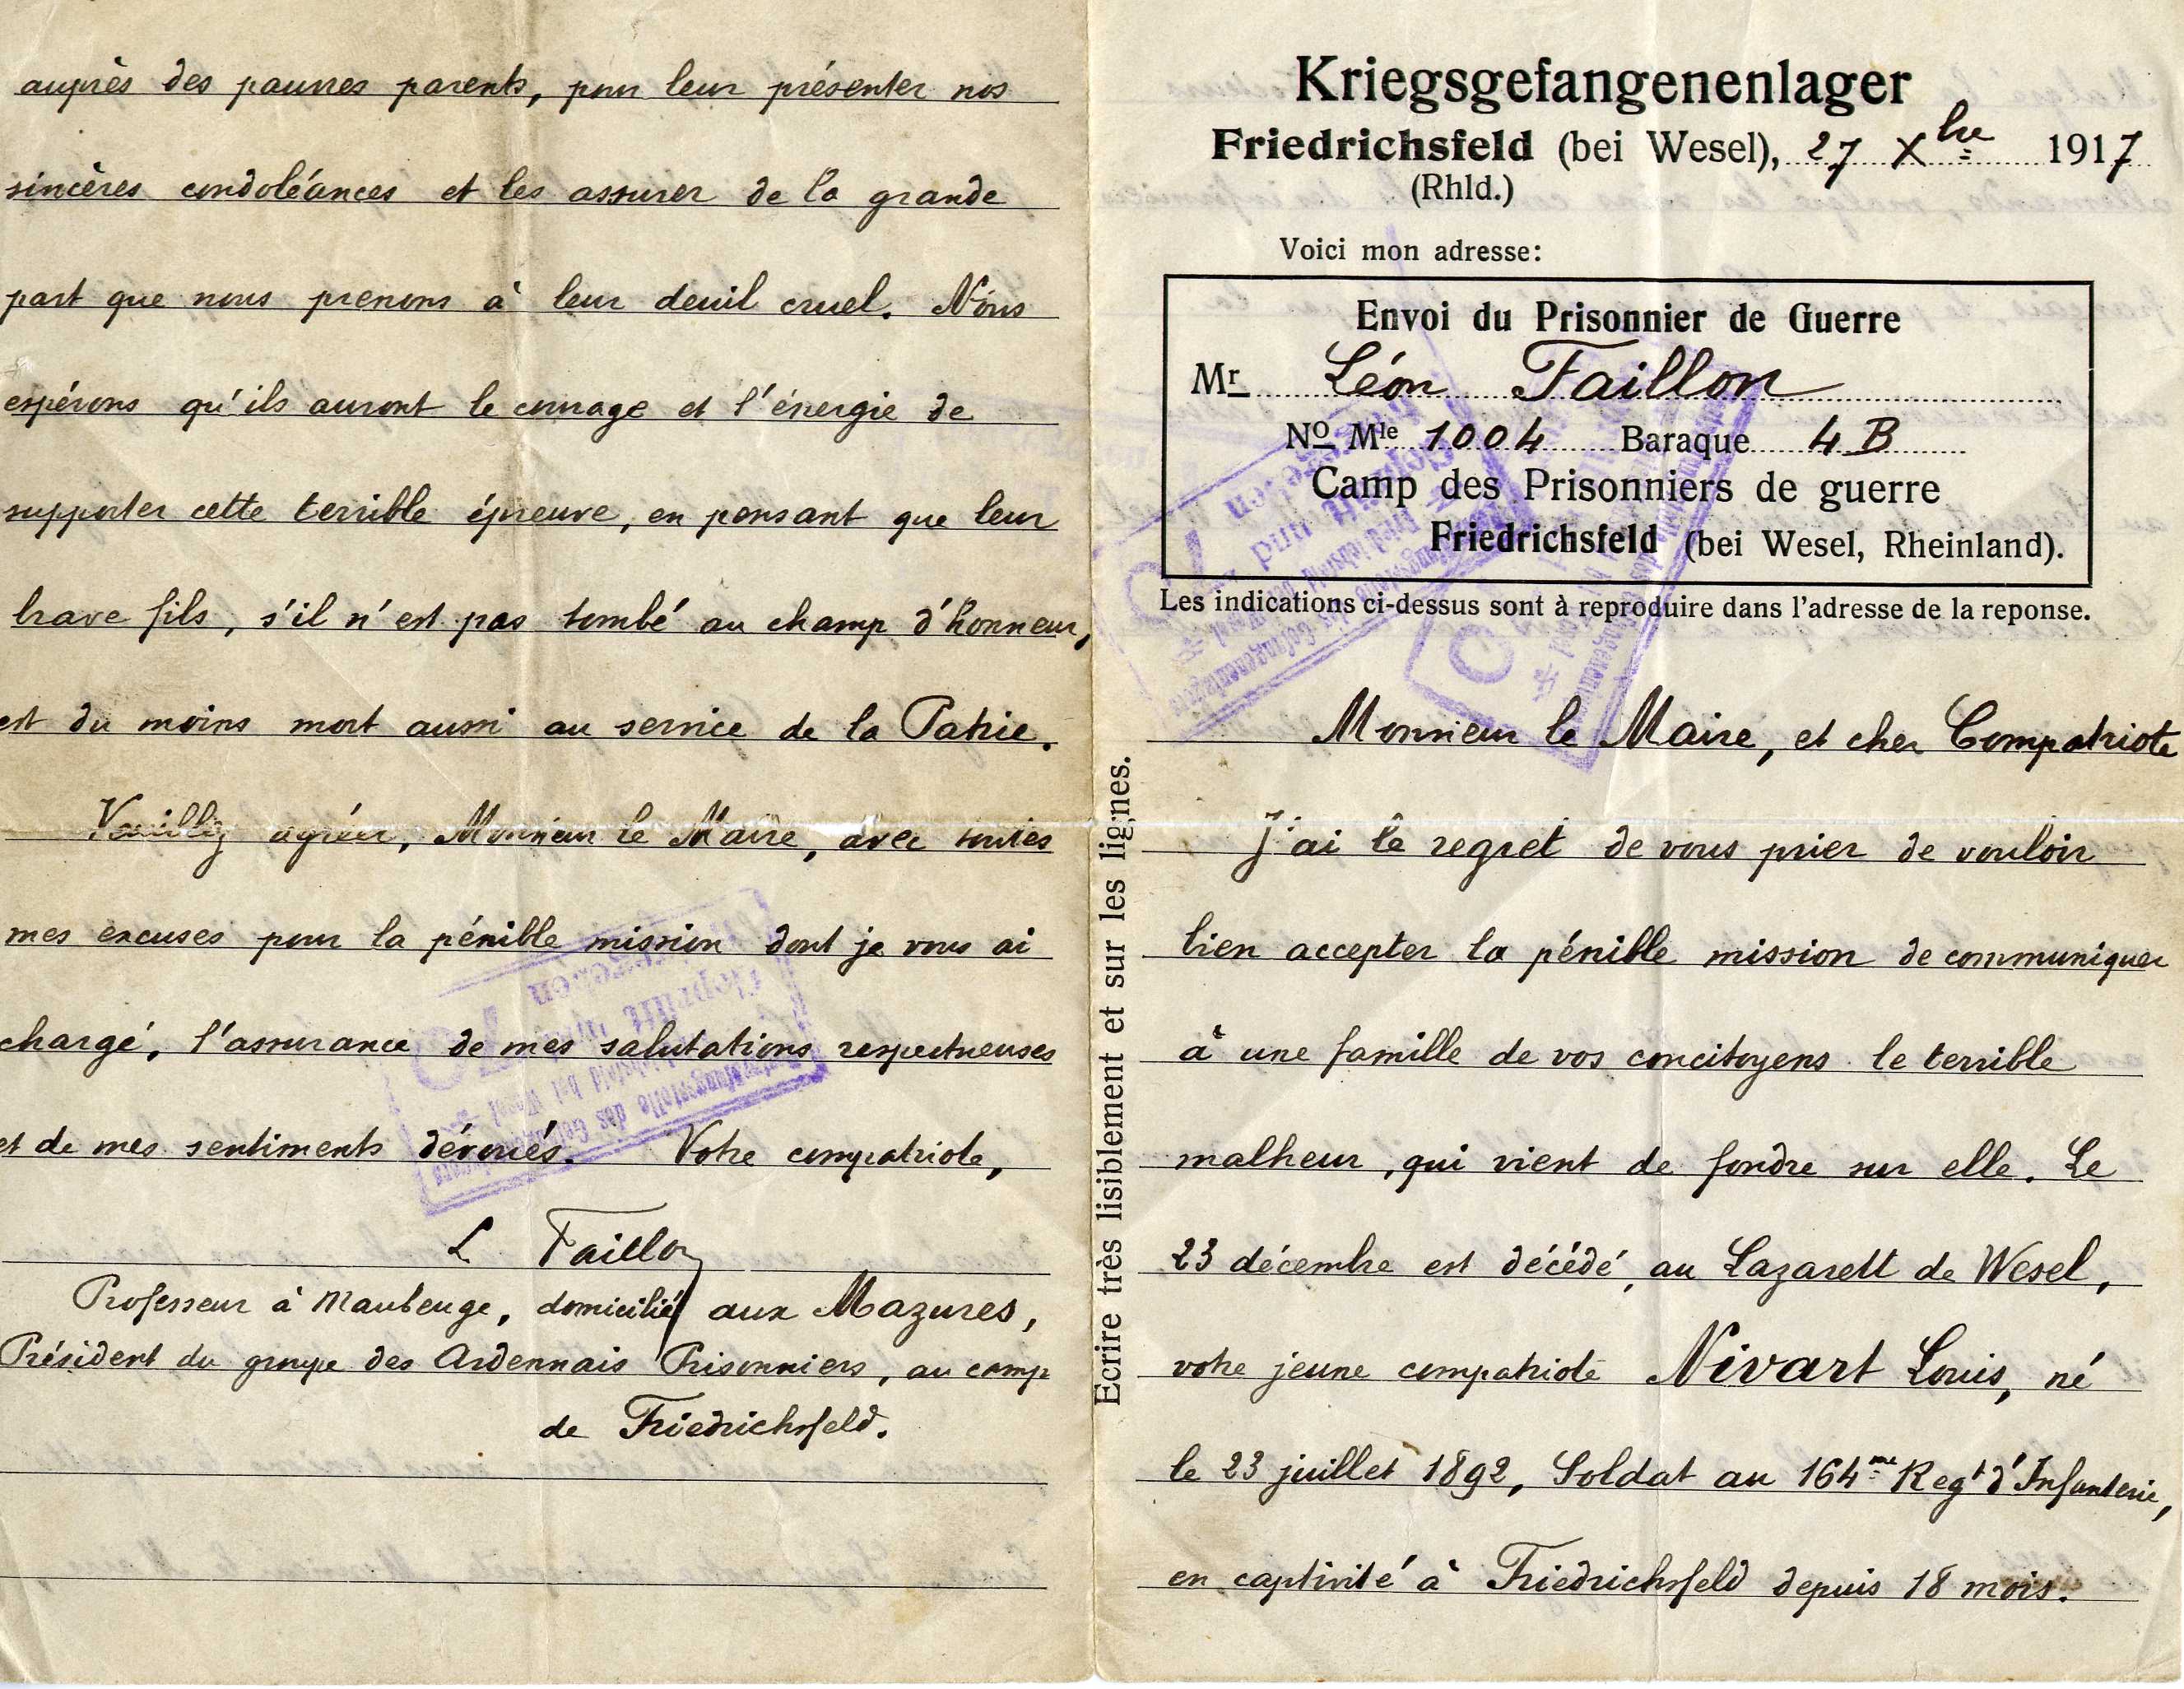 Kriegsgefangenenlager
Friedrichsfeld (bei Wesel), 27 Xbre 1917
(Rhld.)
Voici mon adresse:
Envoi du Prisonnier de Guerre
Mr Léon Faillon
No Mle 1004 Baraque 4 B
Camp des Prisonniers de guerre
Friedrichsfeld (bei Wesel, Rheinland).
Les indications ci-dessus sont à reproduire dans l'adresse de la reponse.
Ecrire très lisiblement et sur les lignes.
Monsieur le Maire, et cher Compatriote
J'ai le regret de vous prier de vouloir
bien accepter la pénible mission de communiquer
à une famille de vos concitoyens le terrible
malheur, qui vient de fondre sur elle. Le
23 décembre est décédé, au Lazarett de Wesel,
votre jeune compatriote Nivart Louis, né
le 23 juillet 1892, Soldat au 164me Regt d'Infanterie,
en captivité à Friedrichsfeld depuis 18 mois.
auprès des pauvres parents, pour leur présenter nos
sincères condoléances et les assurer de la grande
part que nous prenons à leur deuil cruel. Nous
espérons qu'ils auront le courage et l'énergie de
supporter cette terrible épreuve, en pensant que leur
brave fils, s'il n'est pas tombé au champ d'honneur,
est du moins mort aussi au service de la Patrie.
Veuillez agréer, Monsieur le Maire, avec toutes
mes excuses pour la pénible mission dont je vous ai
chargé, l'assurance de mes salutations respectueuses
et de mes sentiments dévoués. Votre compatriote,
L Faillon
Professeur à Maubeuge, domicilié aux Mazures,
Président du groupe des Ardennais Prisonniers, au camp
de Friedrichsfeld.